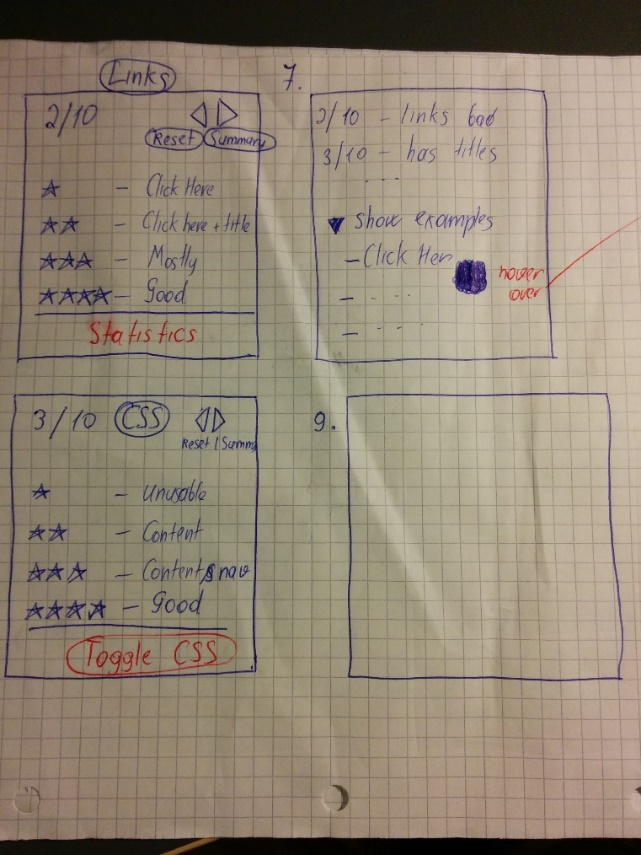 Links
2/10
Reset Summary
★ - Click Here
★★ - Click here + title
★★★ - Mostly
★★★★ - Good
Statistics
7.
2/10 - links bad
3/10 - has titles
- ...
▼ show examples
- Click Her
hover
over
- ...
- ...
3/10 CSS
Reset | Summ
★ - Unusable
★★ - Content
★★★ - Content & nav
★★★★ - Good
Toggle CSS
9.